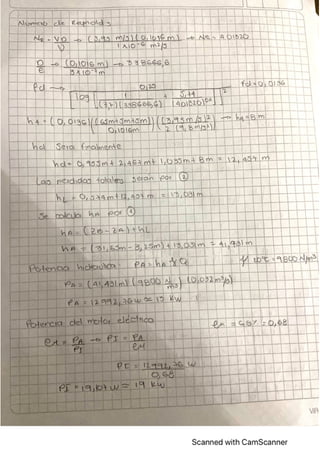 Número de Reynold:
Ne = VD/ν → (3,95 m/s)(0,1016 m) / 1x10⁻⁶ m²/s → Ne = 401320
D/ε → (0,1016 m) / 3x10⁻⁷ m → 338666,6
0,25
log 1 / (3,7)(338666,6) + 5,74 / (401320)⁰·⁹ ² fd = 0,0136
0,1016m
hd será finalmente
hd = 0,955m + 2,464m + 1,035m + 8m = 12,454 m
Las pérdidas totales serán por (2)
hL = 0,577m + 12,454m = 13,031m
Se calcula hA por (1)
hA = (ZB - ZA) + hL
hA = (31,65m - 3,25m) + 13,031m = 41,431m
Potencia hidráulica: PA = hA γ Q γ 10°C = 9800 N/m³
PA = (41,431m)(9800 N/m³)(0,032 m³/s)
PA = 12992,76 w ≈ 13 kW
Potencia del motor eléctrico
eM = PA/PI → PI = PA/eM
PI = 12992,76 w / 0,68
PI = 19,107 w ≈ 19 kW
Scanned with CamScanner